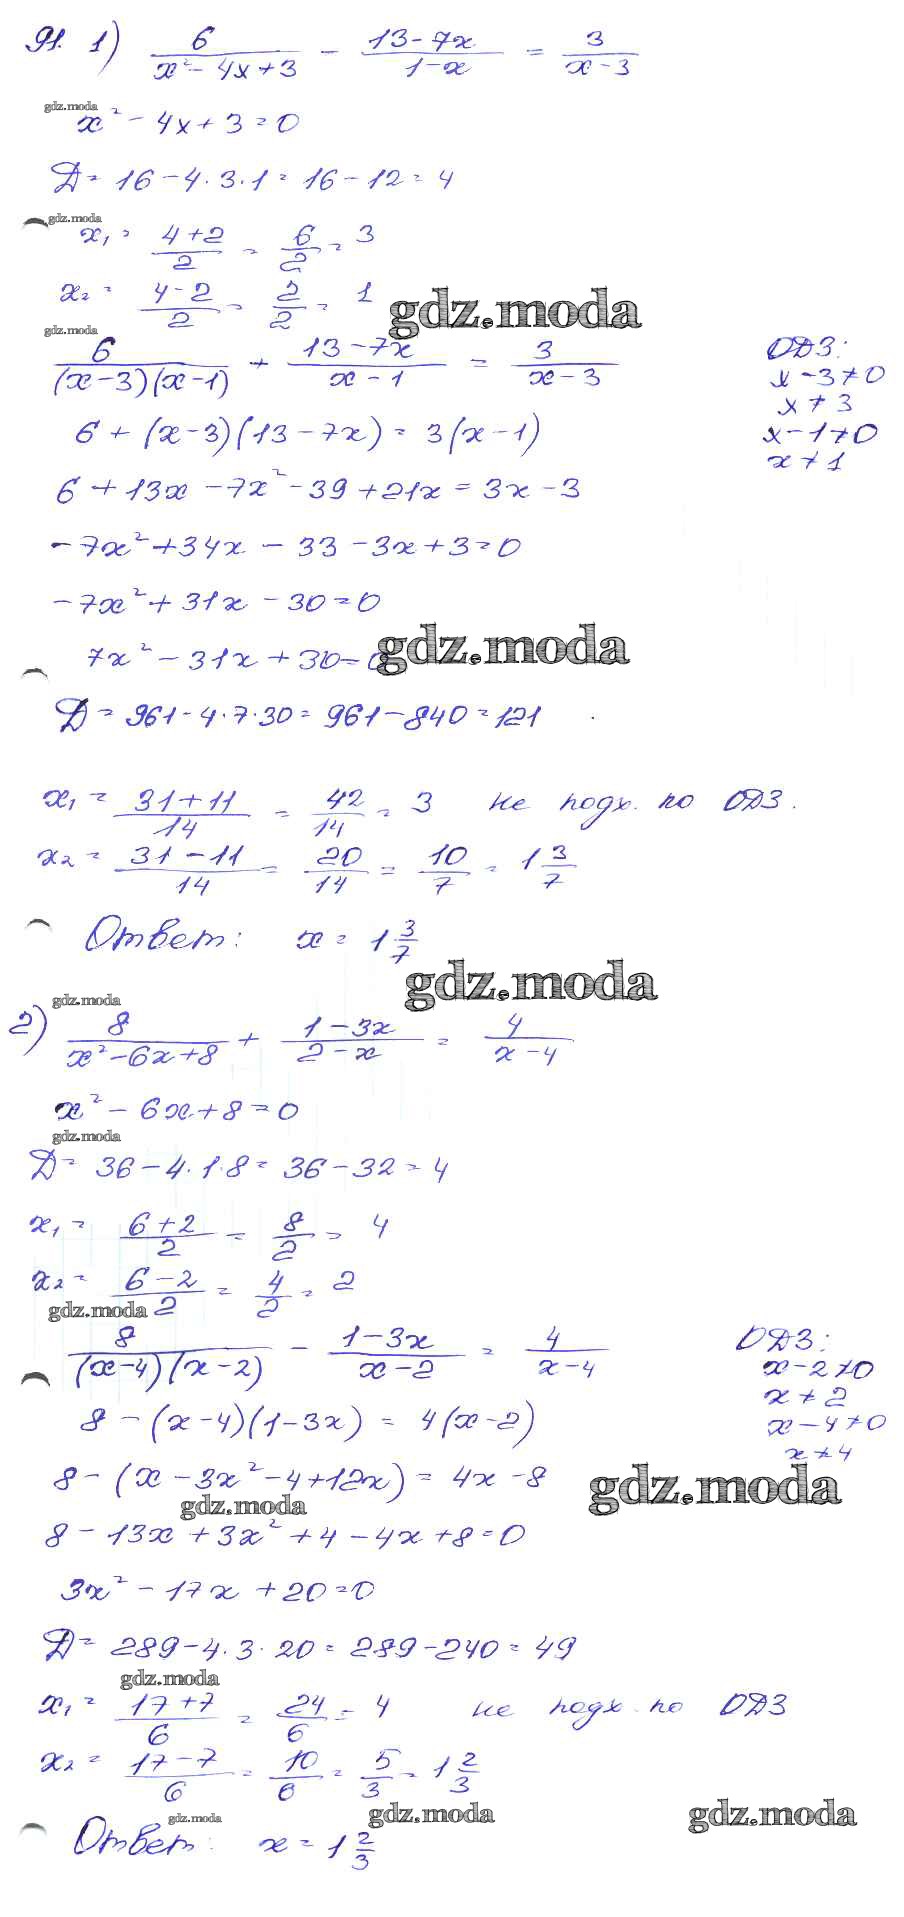 91. 1) 6/(x² - 4x + 3) - (13 - 7x)/(1 - x) = 3/(x - 3)
gdz.moda
x² - 4x + 3 = 0
Д = 16 - 4·3·1 = 16 - 12 = 4
gdz.moda
x₁ = (4 + 2)/2 = 6/2 = 3
x₂ = (4 - 2)/2 = 2/2 = 1
gdz.moda
gdz.moda
6/((x - 3)(x - 1)) + (13 - 7x)/(x - 1) = 3/(x - 3)
ОДЗ:
x - 3 ≠ 0
x ≠ 3
x - 1 ≠ 0
x ≠ 1
6 + (x - 3)(13 - 7x) = 3(x - 1)
6 + 13x - 7x² - 39 + 21x = 3x - 3
-7x² + 34x - 33 - 3x + 3 = 0
-7x² + 31x - 30 = 0
7x² - 31x + 30 = 0
gdz.moda
Д = 961 - 4·7·30 = 961 - 840 = 121
x₁ = (31 + 11)/14 = 42/14 = 3 не подх. по ОДЗ.
x₂ = (31 - 11)/14 = 20/14 = 10/7 = 1 3/7
Ответ: x = 1 3/7
gdz.moda
gdz.moda
2) 8/(x² - 6x + 8) + (1 - 3x)/(2 - x) = 4/(x - 4)
x² - 6x + 8 = 0
gdz.moda
Д = 36 - 4·1·8 = 36 - 32 = 4
x₁ = (6 + 2)/2 = 8/2 = 4
x₂ = (6 - 2)/2 = 4/2 = 2
gdz.moda
8/((x - 4)(x - 2)) - (1 - 3x)/(x - 2) = 4/(x - 4)
ОДЗ:
x - 2 ≠ 0
x ≠ 2
x - 4 ≠ 0
x ≠ 4
8 - (x - 4)(1 - 3x) = 4(x - 2)
8 - (x - 3x² - 4 + 12x) = 4x - 8
gdz.moda
gdz.moda
8 - 13x + 3x² + 4 - 4x + 8 = 0
3x² - 17x + 20 = 0
Д = 289 - 4·3·20 = 289 - 240 = 49
gdz.moda
x₁ = (17 + 7)/6 = 24/6 = 4 не подх. по ОДЗ
x₂ = (17 - 7)/6 = 10/6 = 5/3 = 1 2/3
gdz.moda
gdz.moda
gdz.moda
Ответ: x = 1 2/3